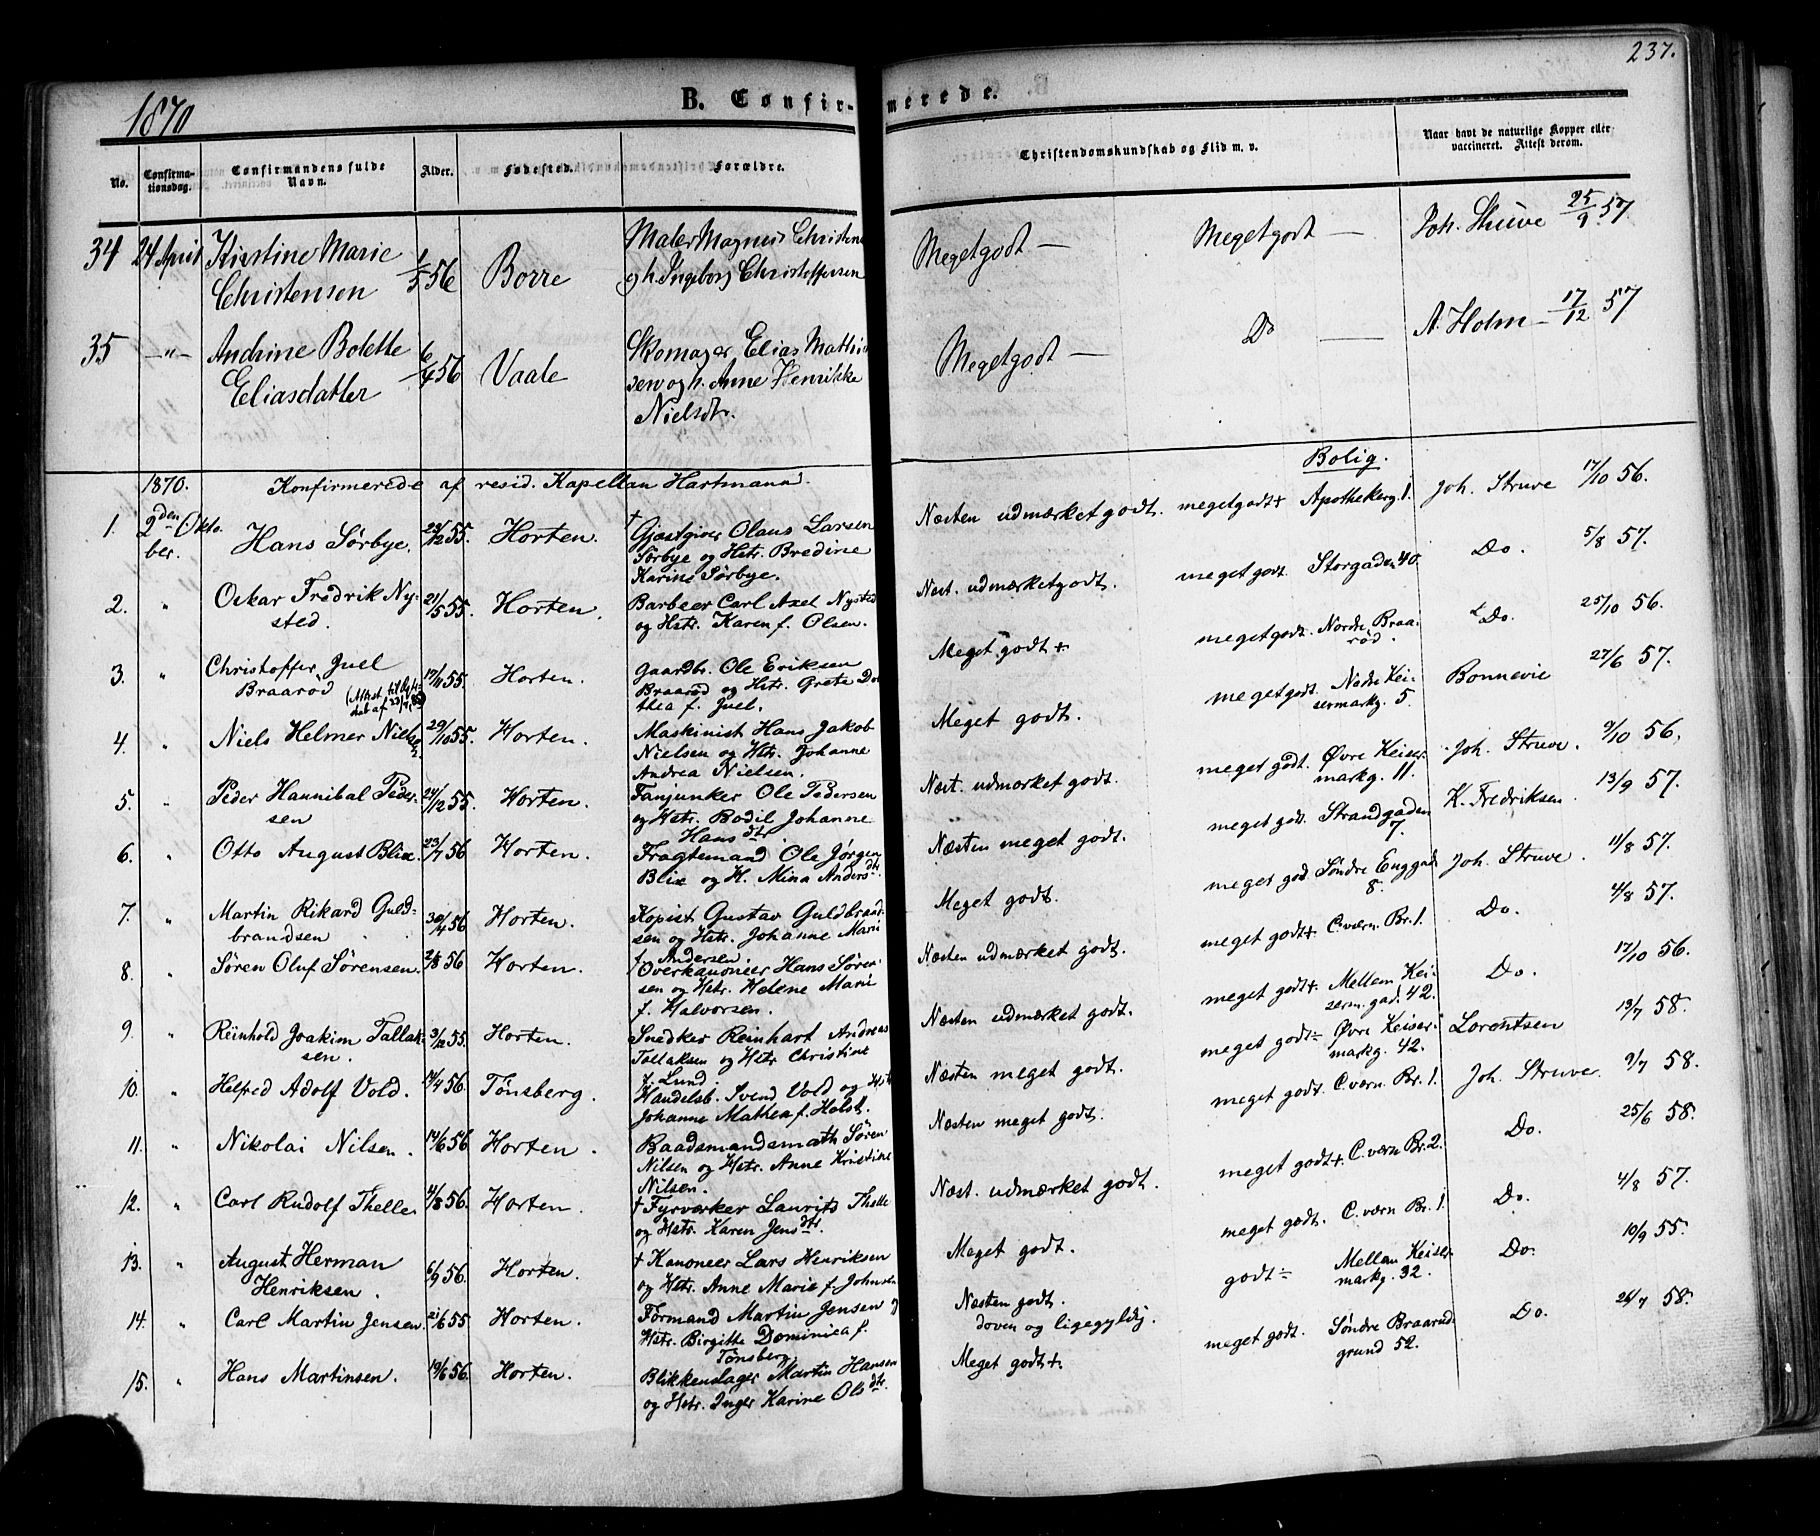 237.
1870
B. Confirmerede.
No.
Confirmationsdag.
Confirmandens fulde Navn.
Alder.
Fødested.
Forældre.
Christendomskundskab og Flid m. v.
Naar havt de naturlige Kopper eller vaccineret. Attest derom.
34 24 April Kirstine Marie 1/5 56 Borre Maler Magnus Christens Megetgodt — Megetgodt — Joh. Struve 25/9 57.
Christensen og h. Ingeborg Christoffersen
35 —"— Andrine Bolette 6/4 56 Vaale Skomager Elias Mathi Megetgodt — Do — A. Holm — 17/12 57
Eliasdatter sen og h. Anne Henrikke
Nielsdtr.
1870. Konfirmerede af resid. Kapellan Hartmann. Bolig.
1. 2den Okto Hans Sørbye. 29/12 55. Horten. † Gjæstgiver Olaus Larsen Næsten udmærket godt. megetgodt+ Apothekerg. 1. Joh. Struve 17/10 56.
ber. Sørbye og Hstr. Bredine
Karine Sørbye.
2. " Oskar Fredrik Ny- 21/5 55. Horten. Barbeer Carl Axel Nysted Næst. udmærketgodt. meget godt. Storgaden 40. Do. 5/8 57.
sted. og Hstr. Karen f. Olsen.
3. " Christoffer Juel 17/11 55. Horten. Gaardbr. Ole Eriksen Meget godt+ megetgodt. Nordre Braa- Do. 25/10 56.
Braarød Braarød og Hstr. Grete Do rød.
(Attest til thea f. Juel.
4. " Niels Helmer Nielsen 29/10 55. Horten. Maskinist Hans Jakob Meget godt. megetgodt. Nedre Kei- Bonnevie 27/6 57.
Nielsen og Hstr. Johanne sermarkg. 5.
Andrea Nielsen.
5. " Peder Hannibal Peder- 24/12 55. Horten. Fanjunker Ole Pedersen Næst. udmærket godt. meget godt. Øvre Keiser Joh. Struve. 9/10 56.
sen og Hstr. Bodil Johanne markg. 11.
Hansdtr.
6. " Otto August Blix. 23/7 56 Horten. Fragtemand Ole Jørgen Næsten meget godt. meget godt. Strandgaden K. Fredriksen. 13/9 57.
Blix og H. Mina Andersdtr. 7.
7. " Martin Rikard Guld- 30/4 56 Horten. Kopist Gustav Guldbrand- Meget godt. meget god. Søndre Enggad. Joh. Struve. 11/8 57.
brandsen sen og Hstr. Johanne Marie 8.
f. Andersen.
8. " Søren Oluf Sørensen. 2/8 56 Horten. Overkanoneer Hans Søren- Næsten udmærket godt. meget godt+ C.værn Br. 1. Do. 4/8 57.
sen og Hstr. Helene Marie
f. Halvorsen.
9. " Reinhold Joakim Tallak- 31/12 55. Horten. Snedker Reinhart Andreas Næsten udmærket godt. meget godt+ Mellem Kei- Do. 17/10 56.
sen. Tallaksen og Hstr. Christine serm.gad. 42.
f. Lund.
10. " Helfred Adolf Vold. 14/4 56. Tønsberg. Handelsb. Svend Vold og Hstr Næsten meget godt. meget godt÷ Øvre Keiser Lorentsen 13/7 58.
Johanne Mathea f. Holst. markg. 42.
11. " Nikolai Nilsen. 14/6 56 Horten. Baadsmandsmath Søren Næsten meget godt. meget godt. C.værn Br. 1. Joh. Struve. 9/7 58.
Nilsen og Hstr. Anne Kristine
Nilsen.
12. " Carl Rudolf Thelle. 4/8 56. Horten. † Fyrværker Laurits Thelle Næst. udmærket godt. meget godt+. C.værn Br. 2. Do. 25/6 58.
og Hstr. Karen Jensdtr.
13. " August Herman 6/9 56. Horten. † Kanoneer Lars Henriksen Meget godt. meget godt. C.værn Br. 1. Do. 4/8 57.
Henriksen. og Hstr. Anne Marie f. Johnsen
14. " Carl Martin Jensen. 21/6 55 Horten. Formand Martin Jensen og Næsten godt. godt÷ Mellem Keiser Do. 10/9 55.
Hstr. Birgitte Dominica f. doven og ligegyldig. markg. 32.
Tønsberg.
15. " Hans Martinsen. 19/6 56. Horten. Blikkenslager Martin Hansen Meget godt+. meget godt. Søndre Braarud Do. 26/7 58.
og Hstr. Inger Karine Olsdtr. grund 52.